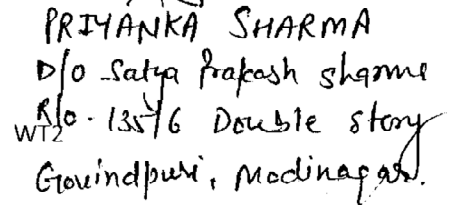 PRIYANKA SHARMA
D/o Satya Prakash Sharma
R/o. 135/6 Double story
WT2
Gouindpuri, Modinagar.